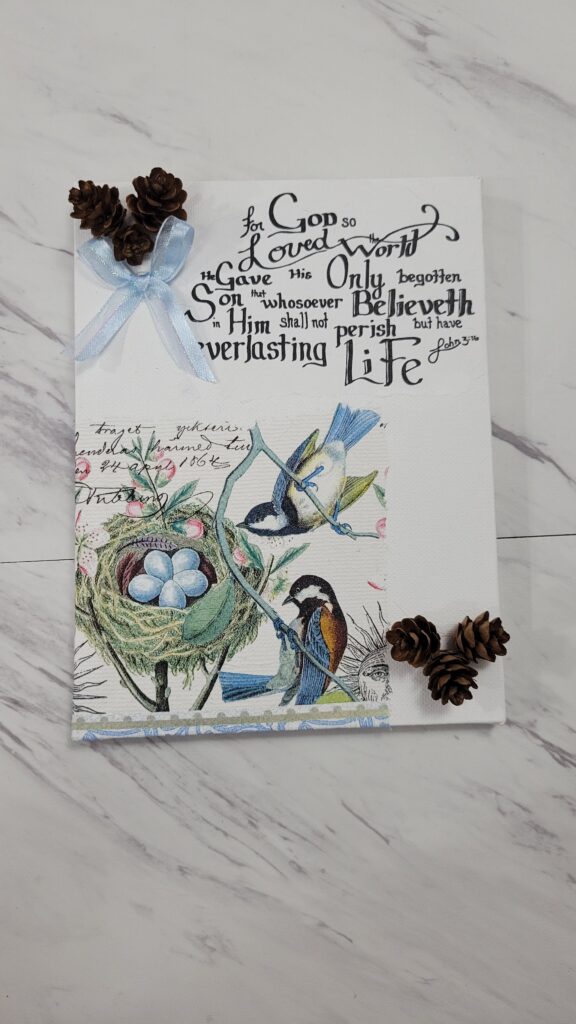 for God so
Loved the World
He Gave His Only begotten
Son that whosoever Believeth
in Him shall not perish but have
everlasting Life John 3:16
24 april 1864